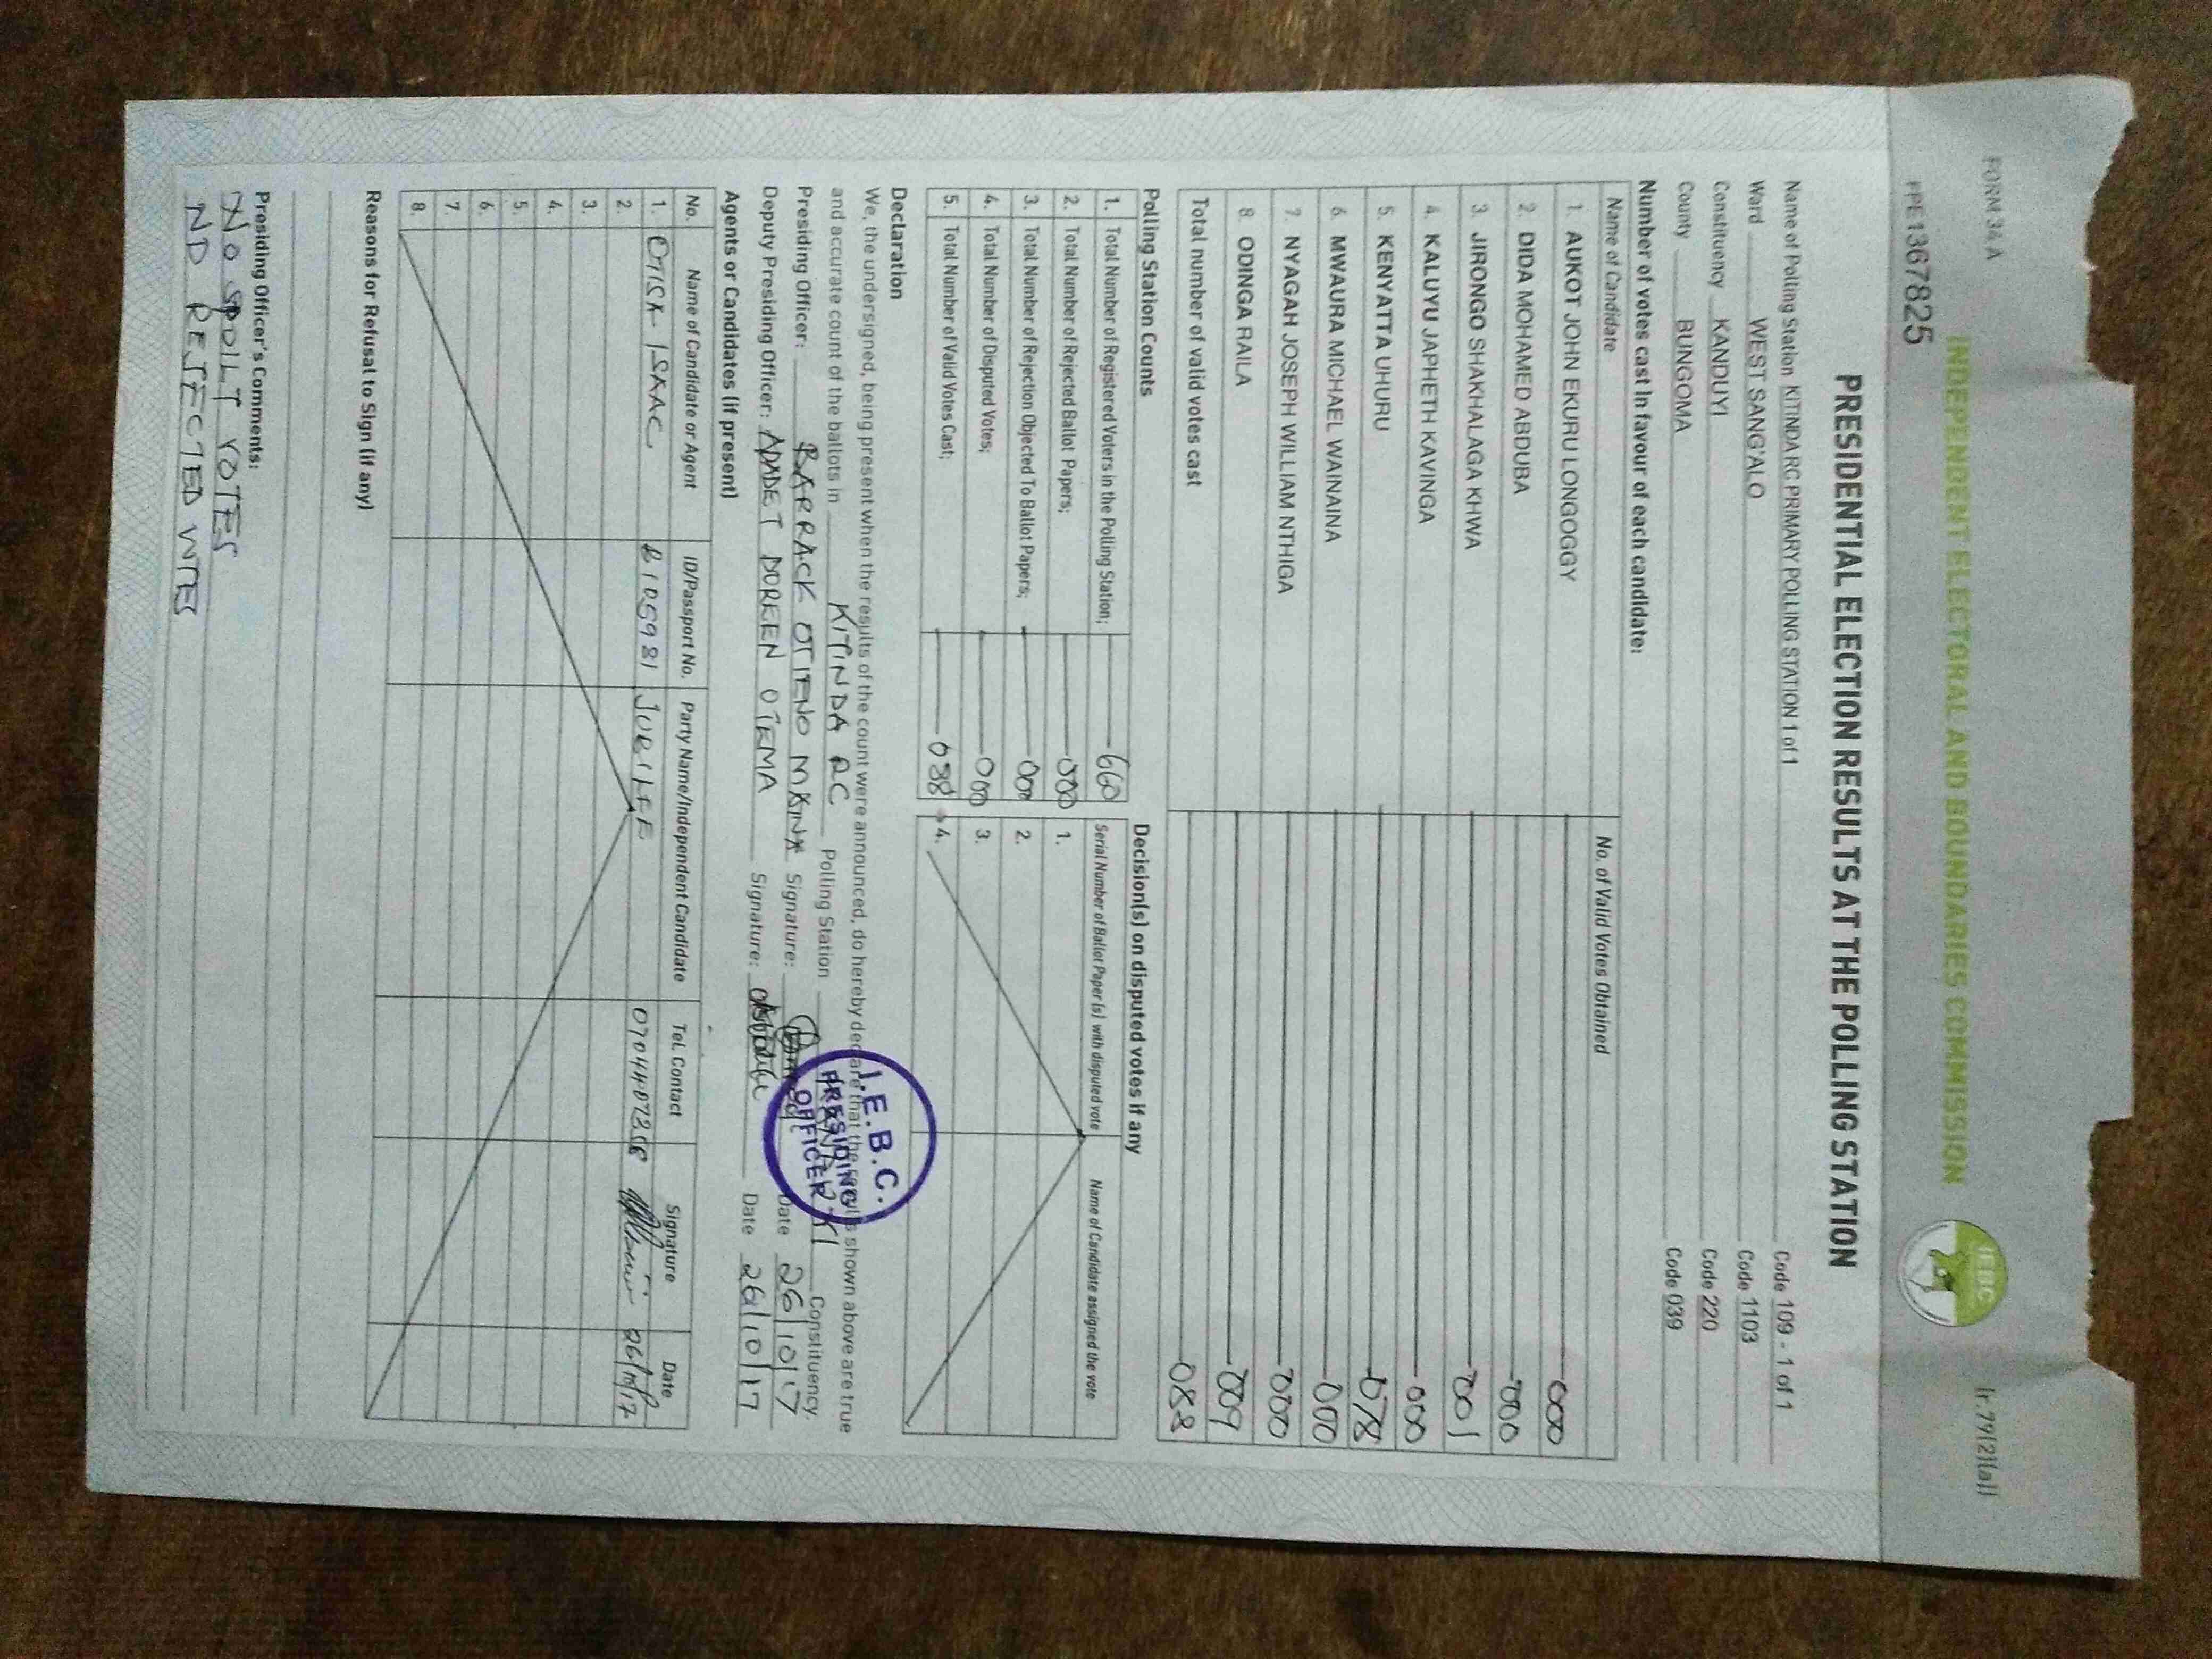 FORM 34A
(r.79(2)(a))
INDEPENDENT ELECTORAL AND BOUNDARIES COMMISSION
IEBC
PPE1367825
PRESIDENTIAL ELECTION RESULTS AT THE POLLING STATION
Name of Polling Station KITINDA RC PRIMARY POLLING STATION 1 of 1 Code 109 - 1 of 1
Ward WEST SANG'ALO Code 1103
Constituency KANDUYI Code 220
County BUNGOMA Code 039
Number of votes cast in favour of each candidate:
Name of Candidate No. of Valid Votes Obtained
1. AUKOT JOHN EKURU LONGOGGY 000
2. DIDA MOHAMED ABDUBA 000
3. JIRONGO SHAKHALAGA KHWA 001
4. KALUYU JAPHETH KAVINGA 000
5. KENYATTA UHURU 078
6. MWAURA MICHAEL WAINAINA 000
7. NYAGAH JOSEPH WILLIAM NTHIGA 000
8. ODINGA RAILA 009
Total number of valid votes cast 088
Polling Station Counts
1. Total Number of Registered Voters in the Polling Station; 660
2. Total Number of Rejected Ballot Papers; 000
3. Total Number of Rejection Objected To Ballot Papers; 000
4. Total Number of Disputed Votes; 000
5. Total Number of Valid Votes Cast; 088
Decision(s) on disputed votes if any
Serial Number of Ballot Paper (s) with disputed vote Name of Candidate assigned the vote
1.
2.
3.
4.
Declaration
We, the undersigned, being present when the results of the count were announced, do hereby declare that the results shown above are true
and accurate count of the ballots in KITINDA RC Polling Station KANDUYI Constituency.
Presiding Officer: BARRACK OTIENO Signature: Date 26/10/17
Deputy Presiding Officer: DOREEN OTEMA Signature: Date 26/10/17
I.E.B.C.
PRESIDING
OFFICER
Agents or Candidates (if present)
No. Name of Candidate or Agent ID/Passport No. Party Name/Independent Candidate Tel. Contact Signature Date
1. ISAAC 2105981 JUBILEE 26/10/17
2.
3.
4.
5.
6.
7.
8.
Reasons for Refusal to Sign (if any)
Presiding Officer's Comments:
NO SPOILT VOTES
NO REJECTED VOTES